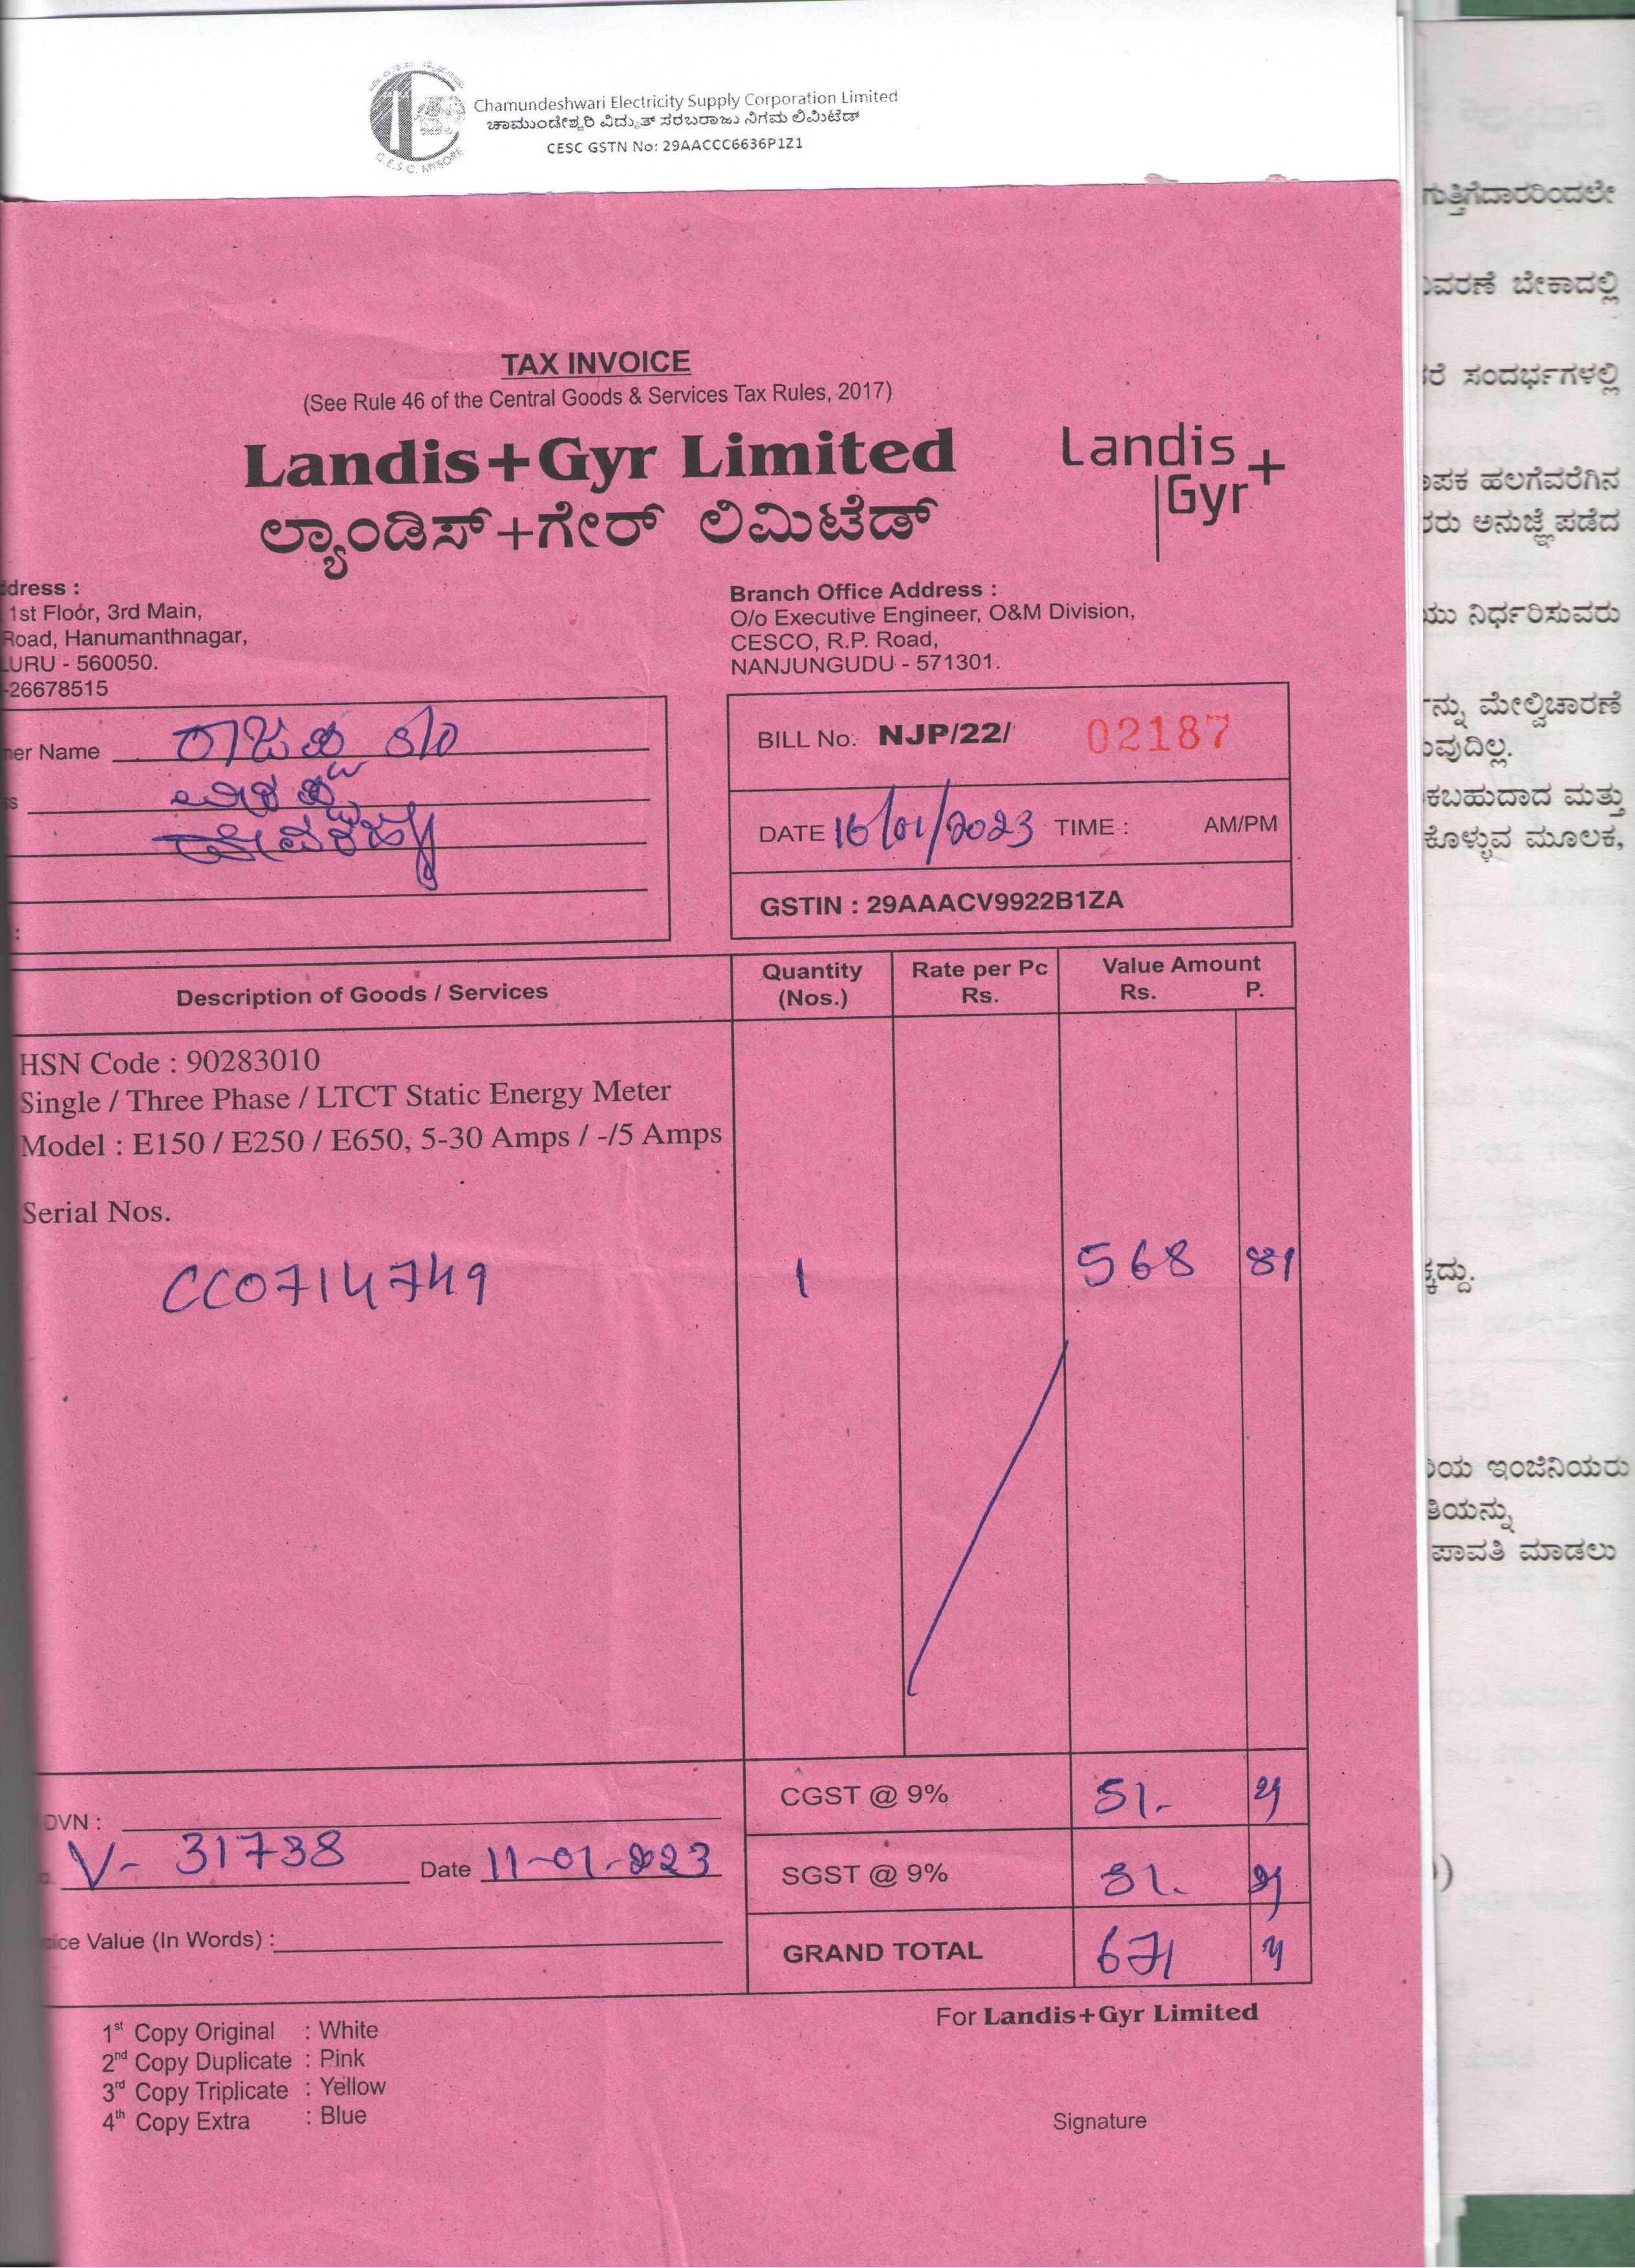 C.E.S.C. MYSORE
Chamundeshwari Electricity Supply Corporation Limited
ಚಾಮುಂಡೇಶ್ವರಿ ವಿದ್ಯುತ್ ಸರಬರಾಜು ನಿಗಮ ಲಿಮಿಟೆಡ್
CESC GSTN No: 29AACCC6636P1Z1
TAX INVOICE
(See Rule 46 of the Central Goods & Services Tax Rules, 2017)
Landis+Gyr Limited
Landis Gyr+
ಲ್ಯಾಂಡಿಸ್+ಗೇರ್ ಲಿಮಿಟೆಡ್
dress :
1st Floor, 3rd Main,
Road, Hanumanthnagar,
LURU - 560050.
-26678515
Branch Office Address :
O/o Executive Engineer, O&M Division,
CESCO, R.P. Road,
NANJUNGUDU - 571301.
er Name
BILL No: NJP/22/ 02187
DATE 16/01/2023 TIME : AM/PM
GSTIN : 29AAACV9922B1ZA
Description of Goods / Services
Quantity (Nos.)
Rate per Pc Rs.
Value Amount Rs. P.
HSN Code : 90283010
Single / Three Phase / LTCT Static Energy Meter
Model : E150 / E250 / E650, 5-30 Amps / -/5 Amps
Serial Nos.
CC0714749 1 568
CGST @ 9% 51.
DVN :
V- 31738 Date 11-01-2023
SGST @ 9% 51.
ice Value (In Words) :
GRAND TOTAL 671
For Landis+Gyr Limited
1st Copy Original : White
2nd Copy Duplicate : Pink
3rd Copy Triplicate : Yellow
4th Copy Extra : Blue
Signature
ಗುತ್ತಿಗೆದಾರರಿಂದಲೇ
ವರಣೆ ಬೇಕಾದಲ್ಲಿ
ರೆ ಸಂದರ್ಭಗಳಲ್ಲಿ
ಪಕ ಹಲಗೆವರೆಗಿನ
ರು ಅನುಜ್ಞೆ ಪಡೆದ
ಯು ನಿರ್ಧರಿಸುವರು
ನ್ನು ಮೇಲ್ವಿಚಾರಣೆ
ವುದಿಲ್ಲ.
ಕಬಹುದಾದ ಮತ್ತು
ಕೊಳ್ಳುವ ಮೂಲಕ,
ಕ್ಕದ್ದು.
ಯ ಇಂಜಿನಿಯರು
ತಿಯನ್ನು
ಪಾವತಿ ಮಾಡಲು